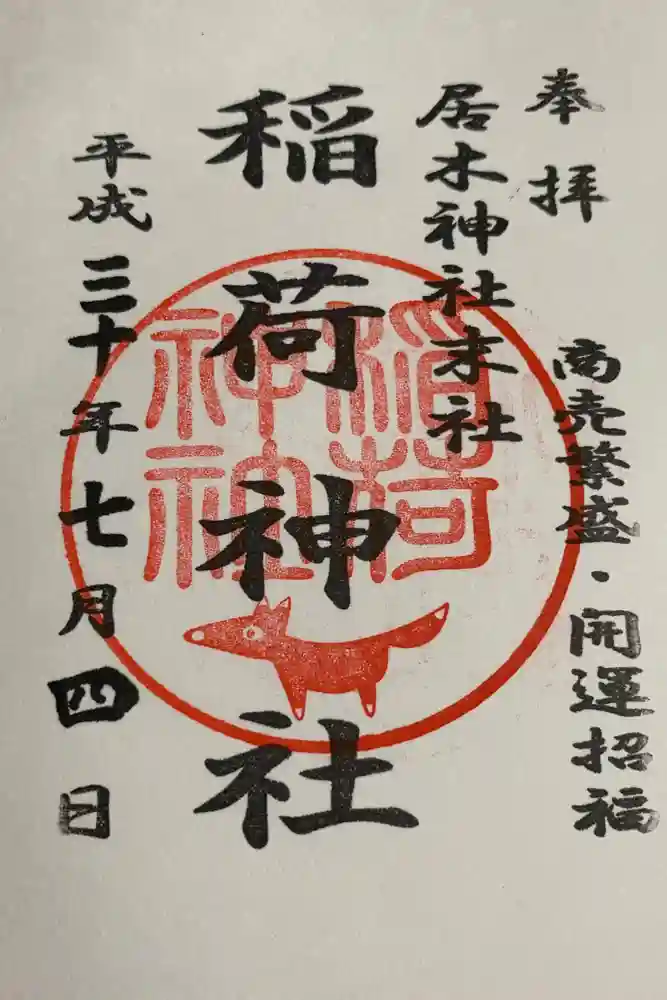 奉拝
商売繁盛・開運招福
居木神社末社
稲荷神社
稲荷神社
平成三十年七月四日